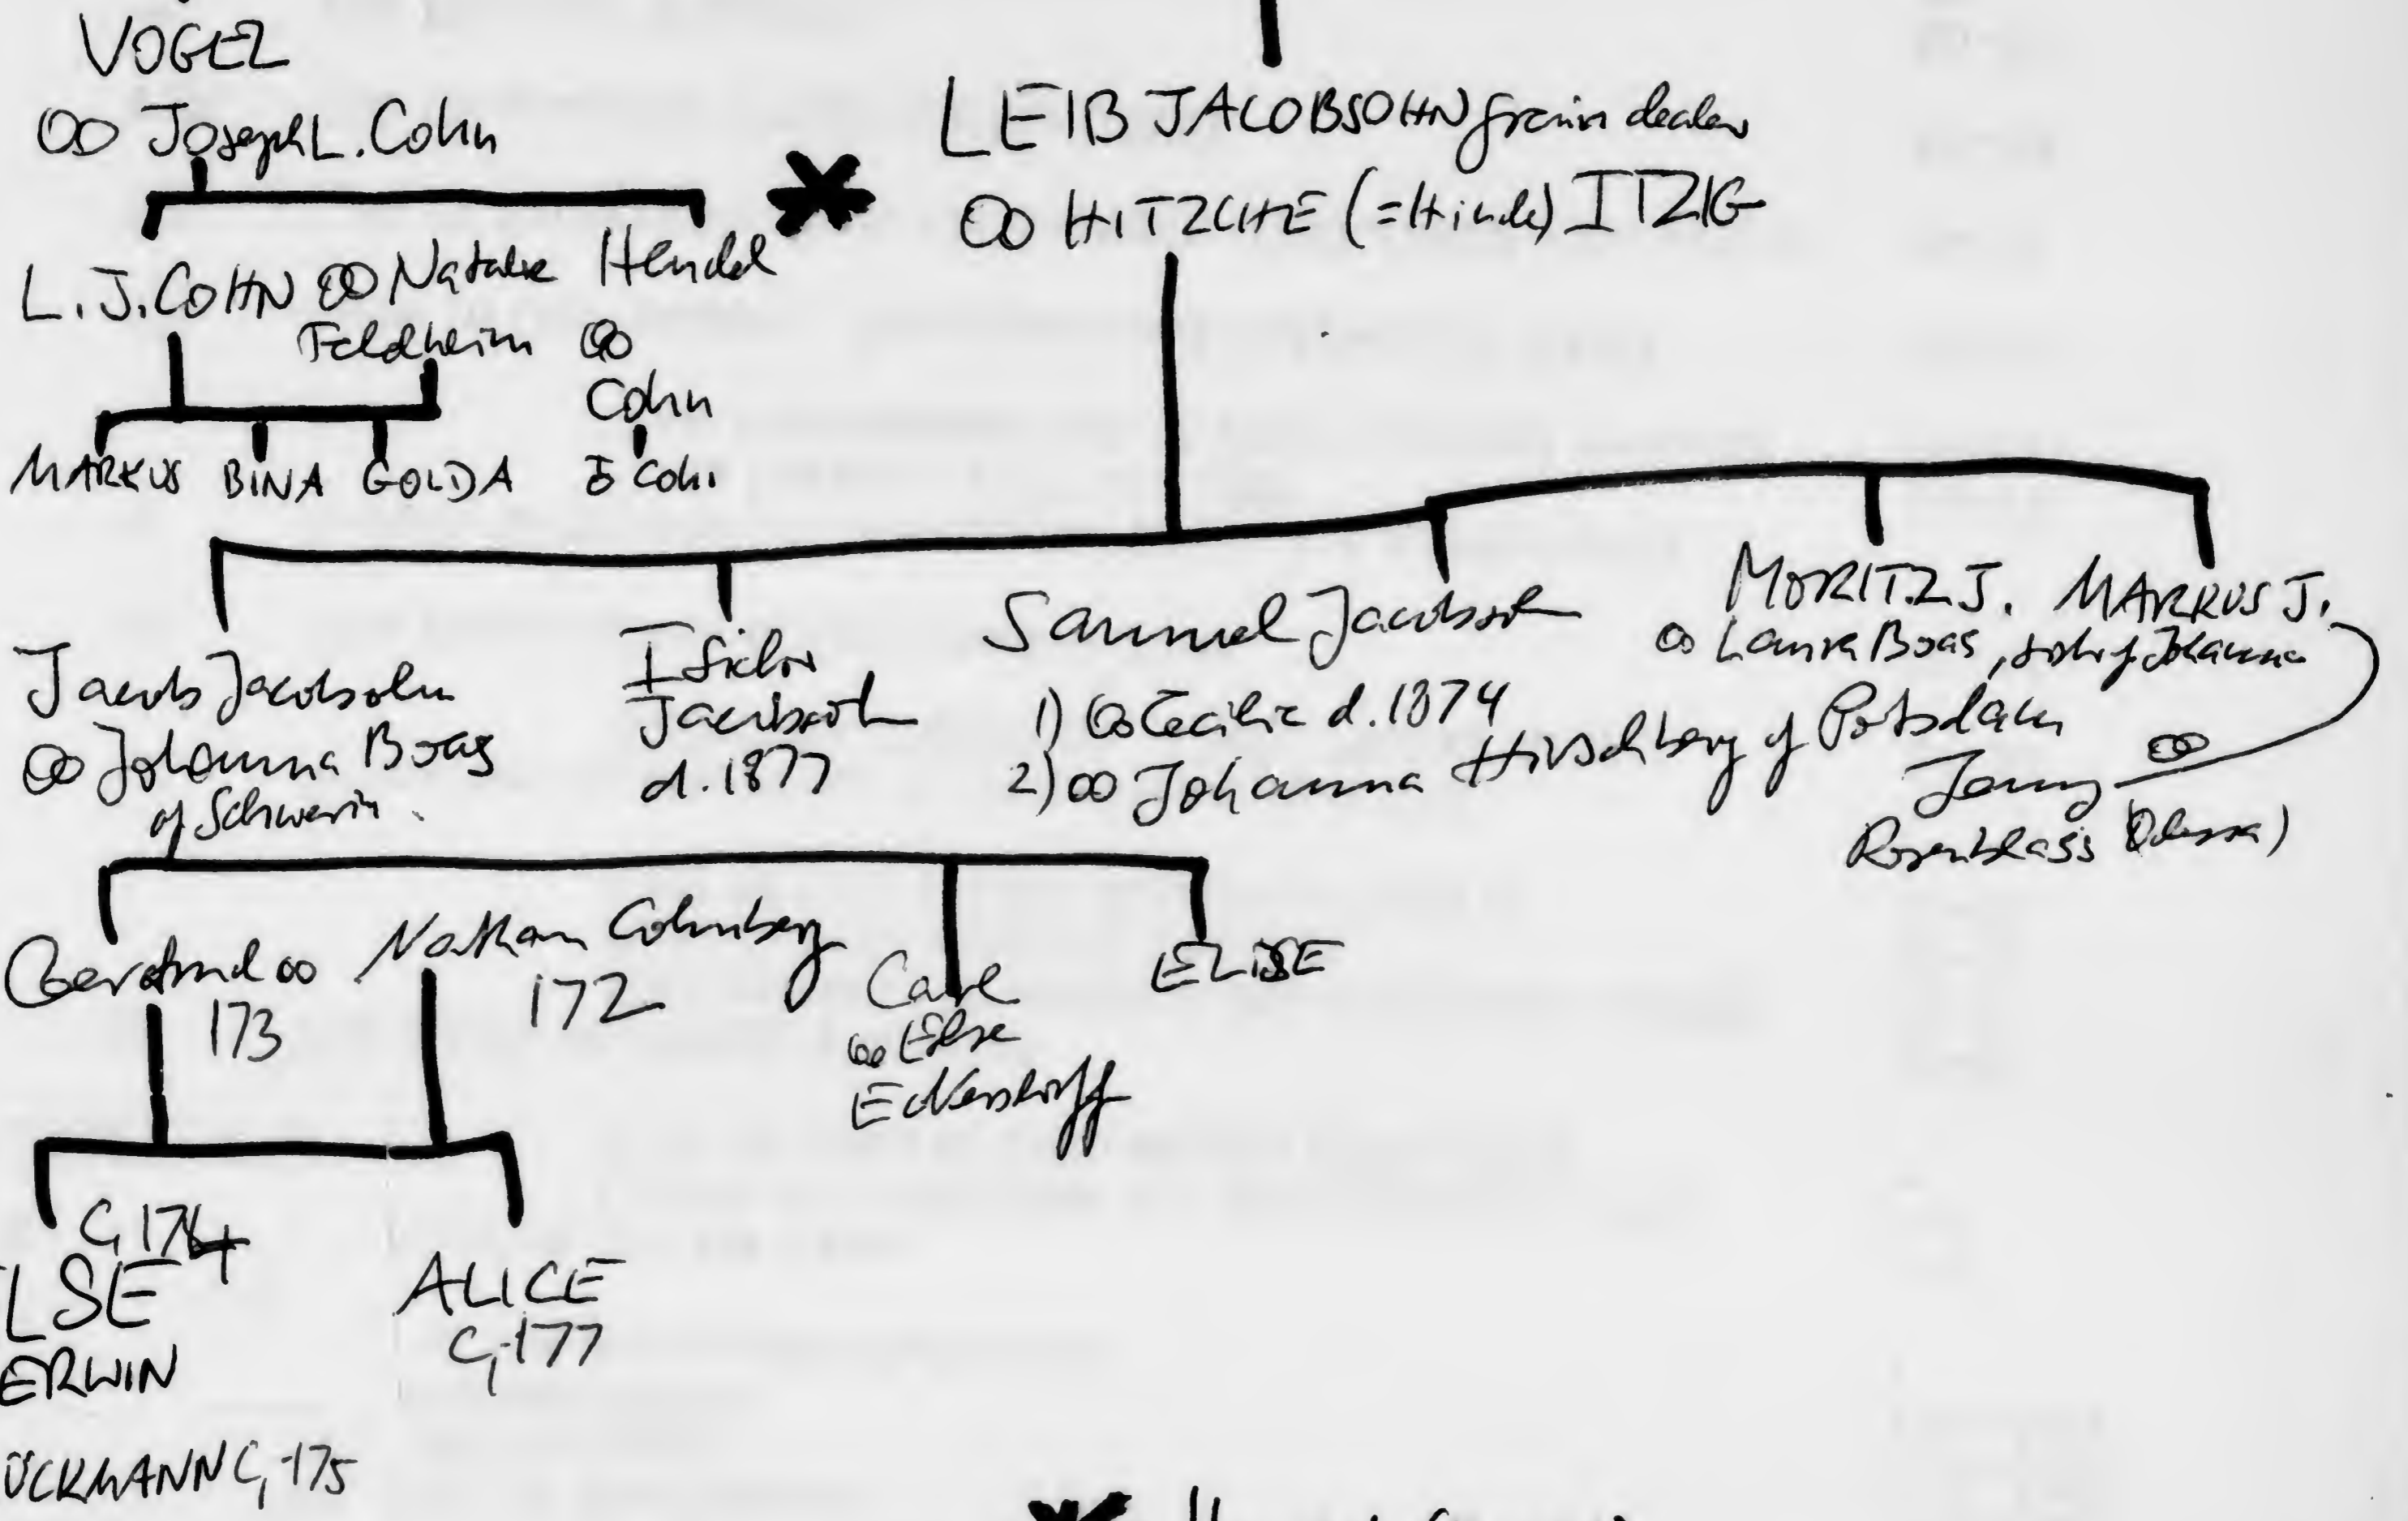 VOGEL
∞ Joseph L. Cohn
L. J. COHN ∞ Natalie
Feldheim
Hendel
∞
Cohn
MARKUS BINA GOLDA
LEIB JACOBSOHN grain dealer
∞ HITZCHE (=Hinde) ITZIG
Jacob Jacobsohn
∞ Johanna Boas
of Schwerin
Isidor
Jacobsohn
d. 1877
Samuel Jacobsohn
1) ∞ Cecilie d. 1874
2) ∞ Johanna Hirschberg of Potsdam
MORITZ J.
∞ Laura Boas, sister of Johanna
MARKUS J.
∞
Jenny
(Odessa)
Gertrud ∞ Nathan Cohnberg
173
172
Carl
∞ Else
ELISE
C, 174
LSE
ERWIN
ÜCKMANN C, 175
ALICE
C, 177